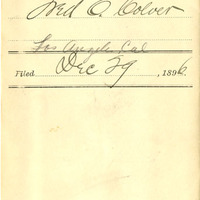 Fred O. Colver
Los Angeles Cal
Dec 29
Filed ..., 1896.